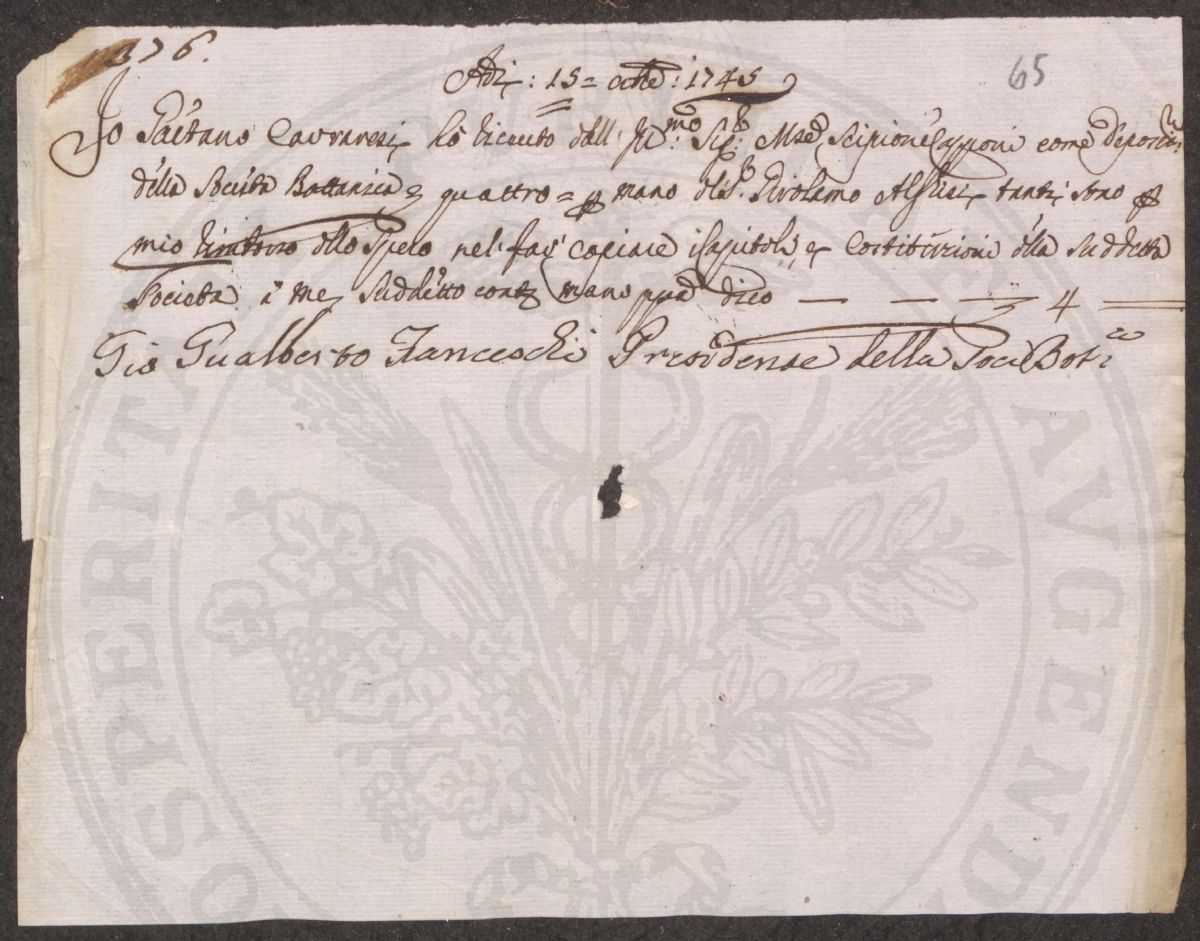 376.
65
Adi: 15 = 8bre: 1745
Io Gaetano ho riceuto dall' Ill:mo Sig:r Mse Scipione Capponi come Deposit:rio
della Società Bottanica quattro = p mano del S.r Girolamo tanti sono p
mio rimborso dello Speso nel far copiare i Capitoli, e Costituzioni della Suddetta
Società à me Suddetto mano ppa dico — — — 4 —
Gio Gualberto Franceschi Presidente della Soc: Bot:ca
PROSPERITATI AVGENDAE